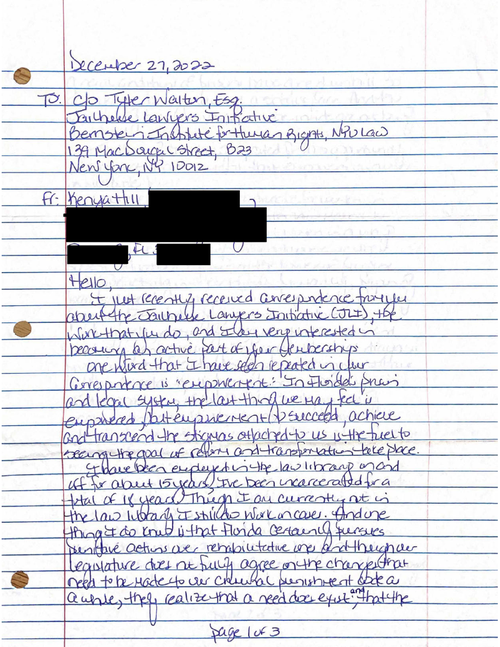 December 27, 2022
To: c/o Tyler Walton, Esq.
Jailhouse Lawyers Initiative
Bernstein Institute for Human Rights, NYU Law
139 MacDougal Street, B23
New York, NY 10012
Fr: Kenya Hill,
FL
Hello,
I just recently received correspondence from you
about the Jailhouse Lawyers Initiative (JLI), the
work that you do, and I am very interested in
becoming an active part of your membership
one word that I have seen repeated in your
correspondence is "empowerment." In Florida's prison
and legal system, the last thing we may feel is
empowered, but empowerment to succeed, achieve
and transcend the stigmas attached to us is the fuel to
seeing the goal of reform and transformation take place.
I have been employed in the law library on and
off for about 15 years, I've been incarcerated for a
total of 18 years. Though I am currently not in
the law library I still do work in cases. And one
thing I do know is that Florida certainly pursues
punitive actions over rehabilitative ones and though our
legislature does not fully agree on the changes that
need to be made to our criminal punishment code as
a whole, they realize that a need does exist and that the
page 1 of 3